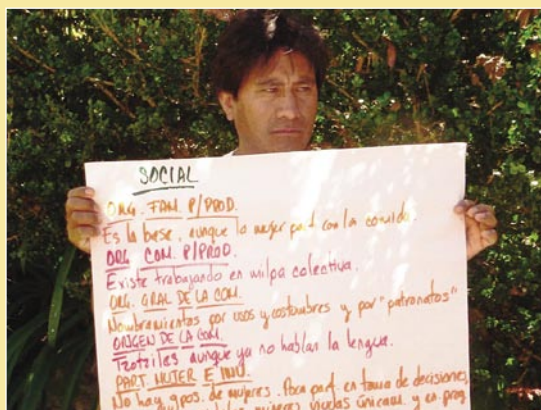 SOCIAL
ORG. FAM P/PROD.
Es la base, aunque la mujer part. con la comida.
ORG COM. P/PROD.
Existe trabajando en milpa colectiva.
ORG. GRAL DE LA COM.
Nombramientos por usos y costumbres y por "patronatos"
ORIGEN DE LA COM.
Tzotziles aunque ya no hablan la lengua.
PART. MUJER E INV.
No hay gpos. de mujeres. Poca part. en toma de decisiones,
mujeres viudas únicam. y en prog